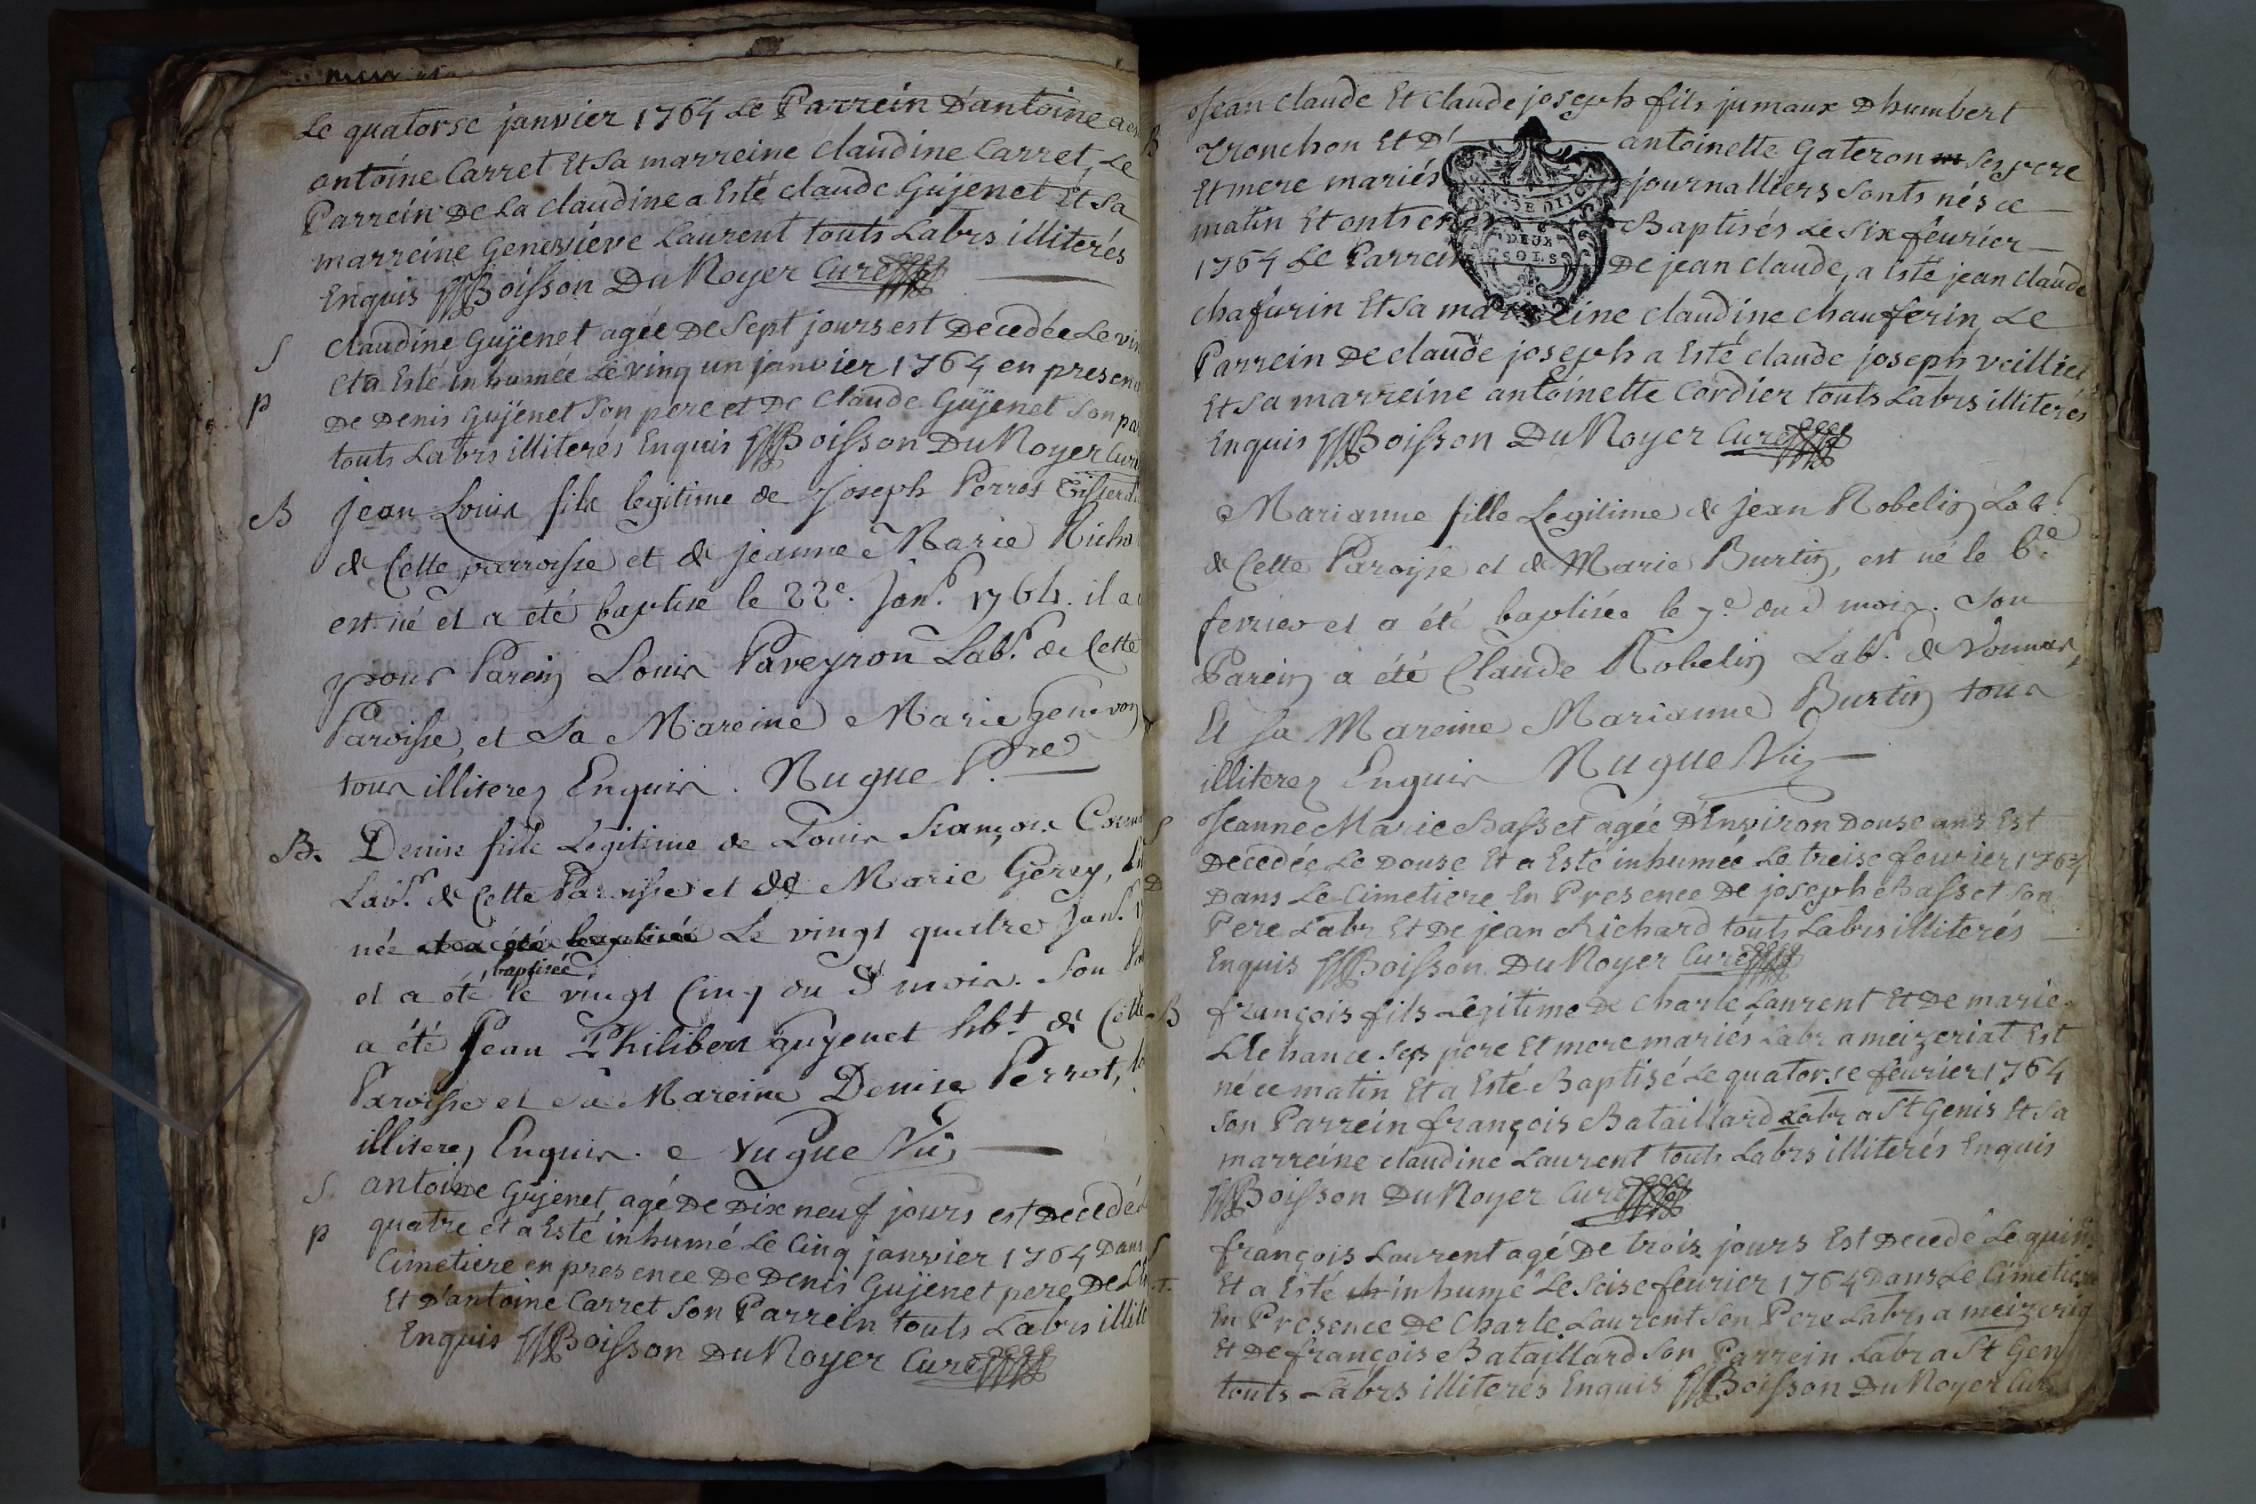 Le quatorse janvier 1764 Le Parrein D'antoine a es
antoine Carret Et Sa marreine claudine Carret, Le
Parrein De La claudine a Esté claude Guÿenet Et Sa
marreine Genevieve Laurent touts Labrs illiterés
Enquis Boisson Du Noyer Curé
S
claudine Guÿenet agée De Sept jours est Decedée Le vin
Et a Esté inhumée Le ving un janvier 1764 en presen
P
De Denis Guÿenet Son pere et De Claude Guÿenet Son pa
touts Labrs illiterés Enquis Boisson Du Noyer Curé
B
jean Louis fils legitime de Joseph Perrot Tisserd
de Cette parroisse et de jeanne Marie Richa
est né et a été baptisé le 22e. Janr. 1764. il a
pour Parein Louis Paveyron Labr. de Cette
Paroisse, et Sa Mareine Marie Genevon
tous illiterez Enquis. Nugue Ptre
B.
Denise fille Legitime de Louis François
Labr. de Cette Paroisse et de Marie Gerey,
née et a été baptisée Le vingt quatre Janr.
baptisée
et a été le vingt Cinq du d mois. Son
a été Jean Philibert guyenet hbt. de Cette
Paroisse et Sa Mareine Denise Perrot,
illiterez Enquis. Nugue Vic
S
antoine Guÿenet agé De Dix neuf jours est Decedé
P
quatre et a Esté inhumé Le Cinq janvier 1764 Dans
Cimetiere en presence De Denis Guÿenet pere De
Et D'antoine Carret Son Parrein touts Labrs illite
Enquis Boisson Du Noyer Curé
B
Jean claude Et claude joseph fils jumaux D humbert
Tronchon Et D' antoinette Gateron Ses pere
Et mere mariés journalliers Sonts nés ce
matin Et onts Baptisés Le Six février
1764 Le Parrein De jean claude, a Esté jean claude
chafurin Et Sa marreine claudine chauferin Le
Parrein De claude joseph a Esté claude joseph veilliet
Et Sa marreine antoinette Cordier touts Labrs illiterés
Enquis Boisson Du Noyer Curé
DEUX
SOLS
Marianne fille Legitime de Jean Robelin Labr
de Cette Paroisse et de Marie Burtin, est né le 6e
fevrier et a été baptisée le 7e du d mois. Son
Parein a été Claude Robelin Labr. de Vonnas,
Et Sa Mareine Marianne Burtin tous
illiterez Enquis Nugue Vic
S
Jeanne Marie Basset agée D'Environ Douse ans Est
Decedée Le Douse Et a Esté inhumée Le treise fevrier 1764
D
Dans Le Cimetiere En Presence De joseph Basset Son
Pere Labr Et De jean Richard touts Labrs illiterés
Enquis Boisson Du Noyer Curé
B
françois fils Legitime De Charle Laurent Et De marie
Ses pere Et mere mariés Labr a meizeriat Est
né ce matin Et a Esté Baptisé Le quatorse février 1764
Son Parrein françois Bataillard Labr a St Genis Et Sa
marreine claudine Laurent touts Labrs illiterés Enquis
Boisson Du Noyer Curé
S
françois Laurent agé De trois jours Est Decedé Le quin
Et a Esté inhumé Le Seise fevrier 1764 Dans Le Cimetiere
En Presence De Charle Laurent Son Pere Labr a meizeria
Et De françois Bataillard Son Parrein Labr a St Gen
touts Labrs illiterés Enquis Boisson Du Noyer Cur